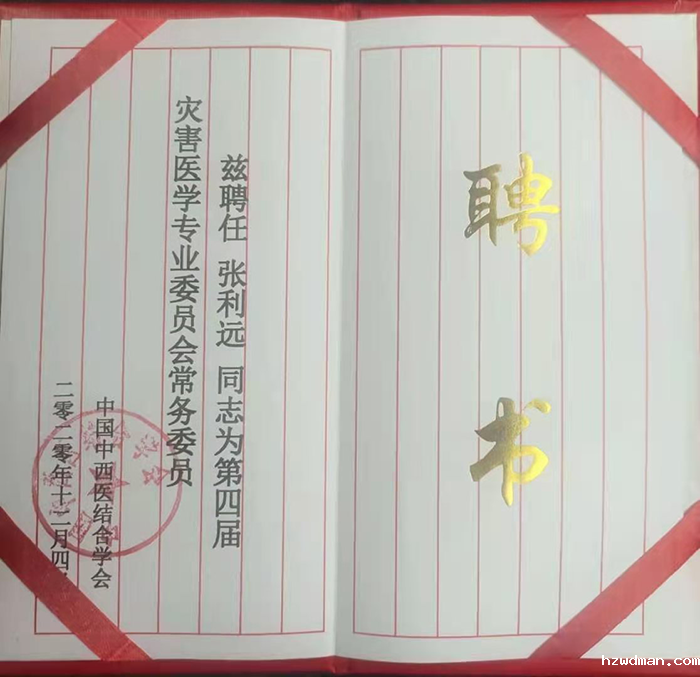 聘书
兹聘任 张利远 同志为第四届
灾害医学专业委员会常务委员
中国中西医结合学会
二零二零年十二月四
hzwdman.com